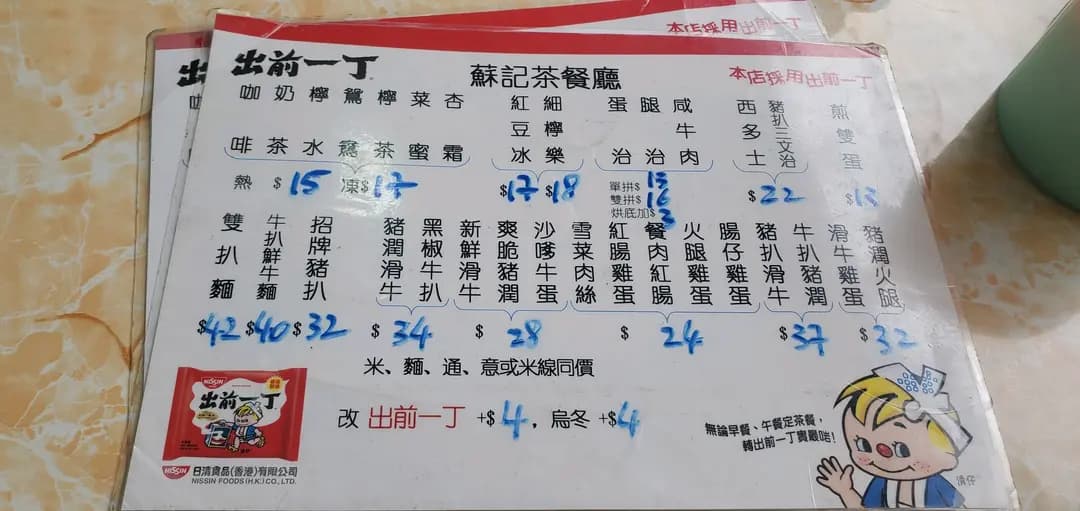 本店採用出前一丁
出前一丁
蘇記茶餐廳
本店採用出前一丁
咖啡
奶茶
檸水
鴛鴦
檸茶
菜蜜
杏霜
熱 $15 凍$17
紅豆冰
細檸樂
$17 $18
蛋治
腿治
咸牛肉
單拼$ 15
雙拼$ 16
烘底加$ 3
西多士
豬扒三文治
$22
煎雙蛋
$13
雙扒麵
$42
牛扒鮮牛麵
$40
招牌豬扒
$32
豬潤滑牛
黑椒牛扒
$34
新鮮滑牛
爽脆豬潤
沙嗲牛蛋
$28
雪菜肉絲
紅腸雞蛋
餐肉紅腸
火腿雞蛋
腸仔雞蛋
$24
豬扒滑牛
牛扒豬潤
$37
滑牛雞蛋
豬潤火腿
$32
米、麵、通、意或米線同價
改 出前一丁 +$4, 烏冬 +$4
NISSIN
出前一丁
NISSIN 日清食品(香港)有限公司
NISSIN FOODS (H.K.) CO., LTD.
無論早餐、午餐定茶餐,
轉出前一丁實最啱!
清仔